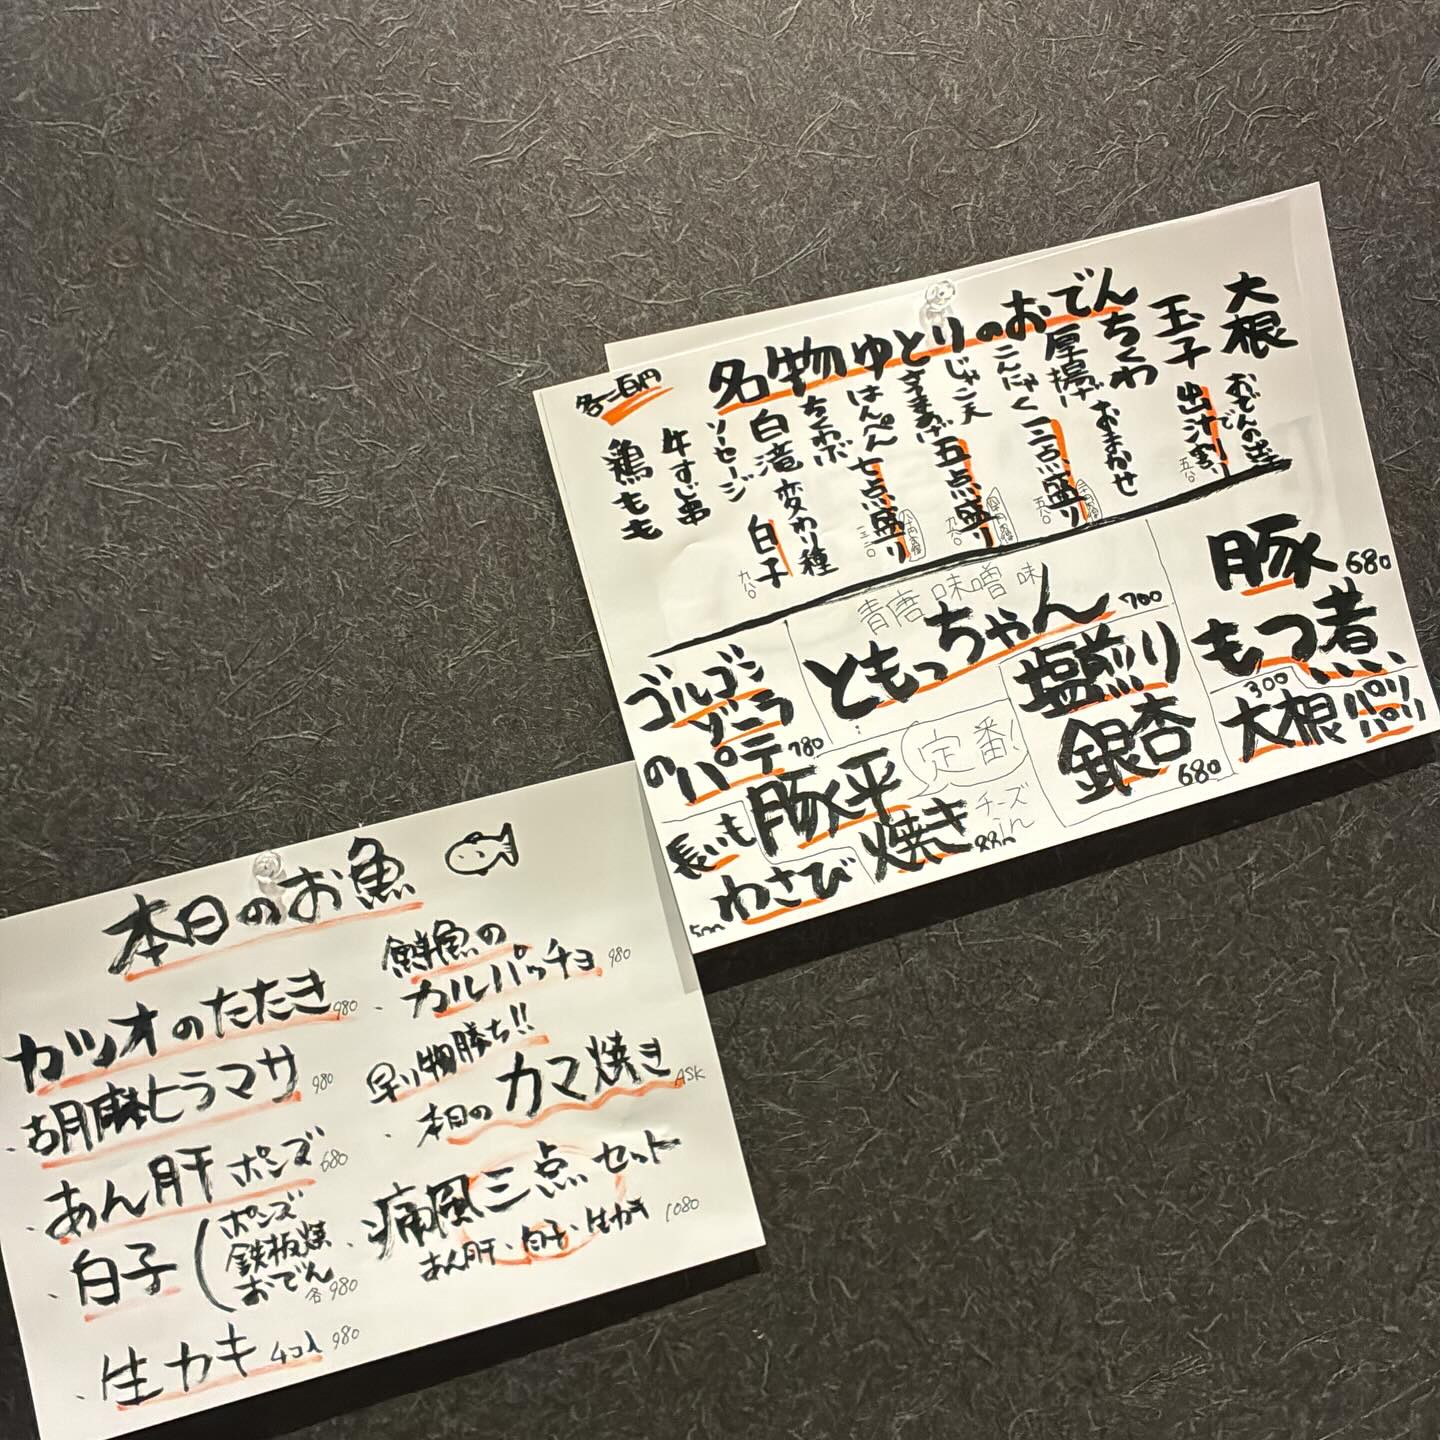 名物ゆとりのおでん
各二百円
大根
玉子
ちくわ
厚揚げ
こんにゃく
じゃこ天
はんぺん
ちくわぶ
白滝
ソーセージ
牛すじ串
鶏もも
出汁割り
五八〇
おまかせ
三点盛り
五八〇
五点盛り
九八〇
七点盛り
変わり種
白子
九八〇
豚
もつ煮
680
大根パリパリ
300
青唐味噌味
ともっちゃん
700
塩煎り
銀杏
680
ゴルゴン
ゾーラ
のパテ
780
豚平
焼き
定番!
チーズ
in
長いも
わさび
本日のお魚
カツオのたたき 980
・胡麻ヒラマサ 980
・あん肝ポンズ 680
・白子
ポンズ
鉄板焼
おでん
各980
・生カキ 4コ入 980
・鰤魚の
カルパッチョ 980
早い物勝ち!!
・本日のカマ焼き ASK
・痛風三点セット
あん肝・白子・生カキ 1080